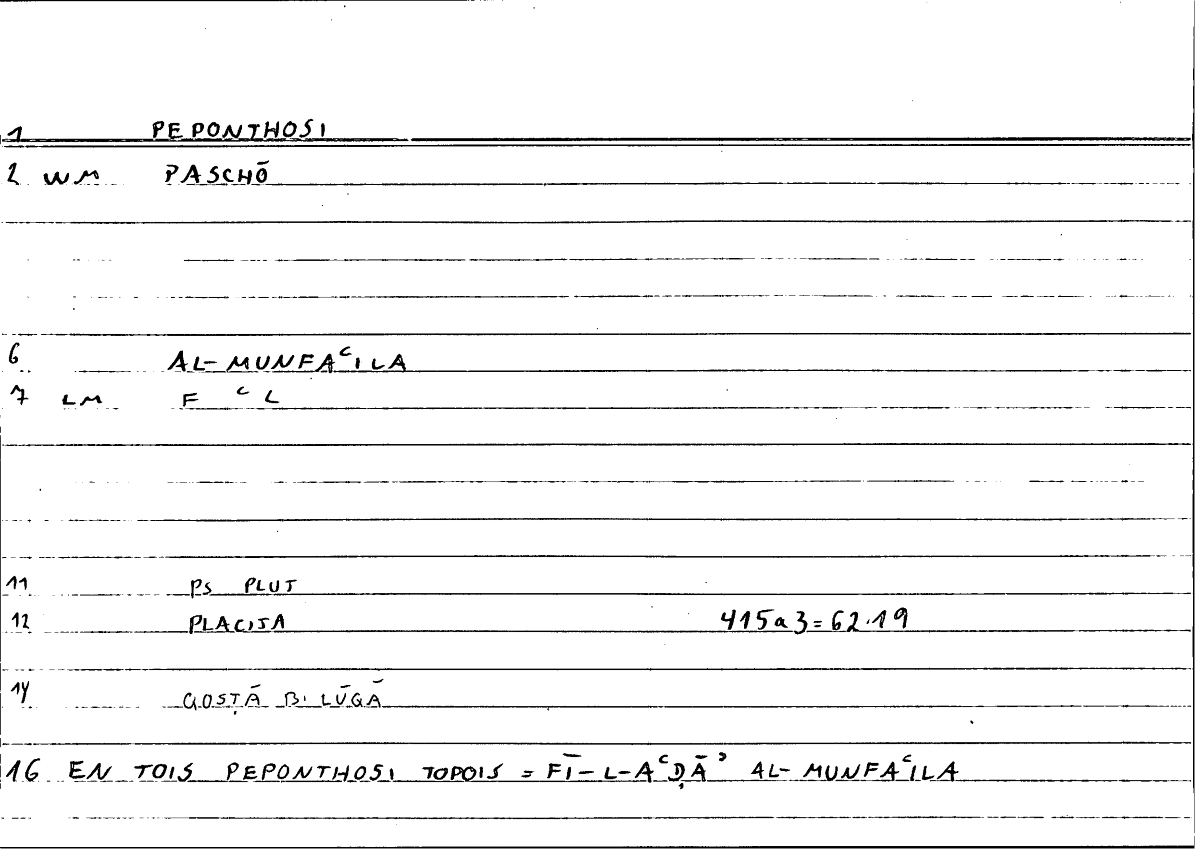 1 PEPONTHOSI
2 WM PASCHŌ
6 AL-MUNFAʿILA
7 LM F ʿ L
11 PS PLUT
12 PLACITA 415a3=62.19
14 QOSṬĀ B. LŪQĀ
16 EN TOIS PEPONTHOSI TOPOIS = FĪ-L-AʿḌĀʾ AL-MUNFAʿILA